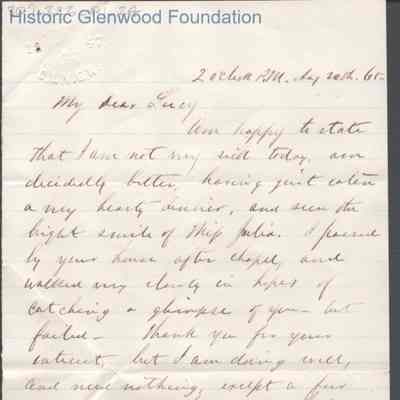 Historic Glenwood Foundation
2 oclock P.M. Aug 20th. 60-
My dear Lucy
Am happy to state
that I am not my sick today, am
decidedly better, having just eaten
a very hearty dinner, and seen the
bright smile of Miss Julia. I passed
by your house after chapel, and
walked very slowly in hopes of
catching a glimpse of you - but
failed - Thank you for your
interest, but I am doing well,
and need nothing, except a few